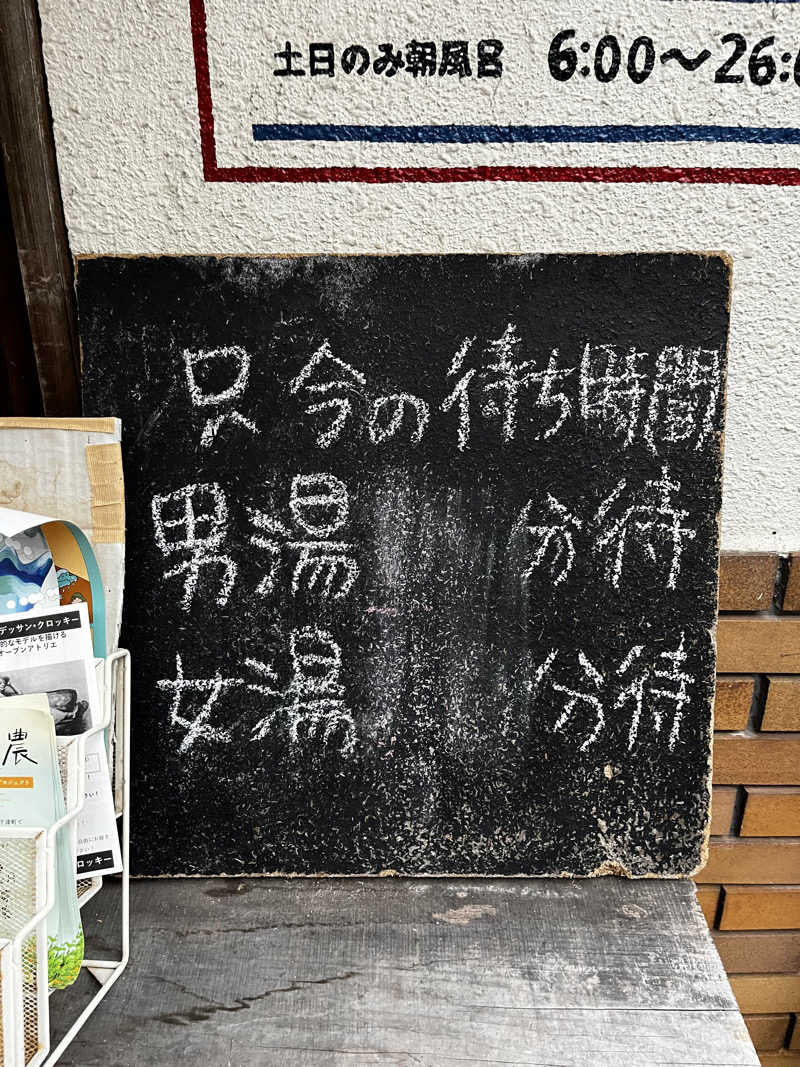 土日のみ朝風呂 6:00〜26:
只今の待ち時間
男湯 分待
女湯 分待
デッサン・クロッキー
的なモデルを描ける
オープンアトリエ
農
ロッキー